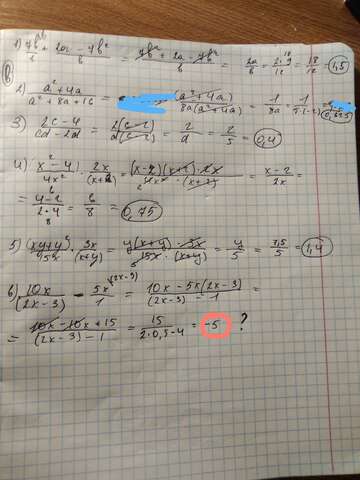 1) 7b² / b + 2a - 7b² / b = 7b² + 2a - 7b² / b = 2a / b = 2·9 / 12 = 18 / 12 = 1,5
2) a² + 4a / a² + 8a + 16 = (a² + 4a) / 8a(a² + 4a) = 1 / 8a = 1 / 8·(-2) =
3) 2c - 4 / cd - 2d = 2(c - 2) / d(c - 2) = 2 / d = 2 / 5 = 0,4
4) x² - 4 / 4x² · 2x / (x + 2) = (x - 2)(x + 2) · 2x / 4x² · (x + 2) = x - 2 / 2x =
= 4 - 2 / 2·4 = 6 / 8 = 0,75
5) (xy + y²) / 15x · 3x / (x + y) = y(x + y) · 3x / 15x · (x + y) = y / 5 = / 5 = 1,4
6) 10x / (2x - 3) - 5x / 1 (2x - 3) = 10x - 5x(2x - 3) / (2x - 3) - 1 =
= 10x - 10x + 15 / (2x - 3) - 1 = 15 / 2·0,5 - 4 = -5 ?